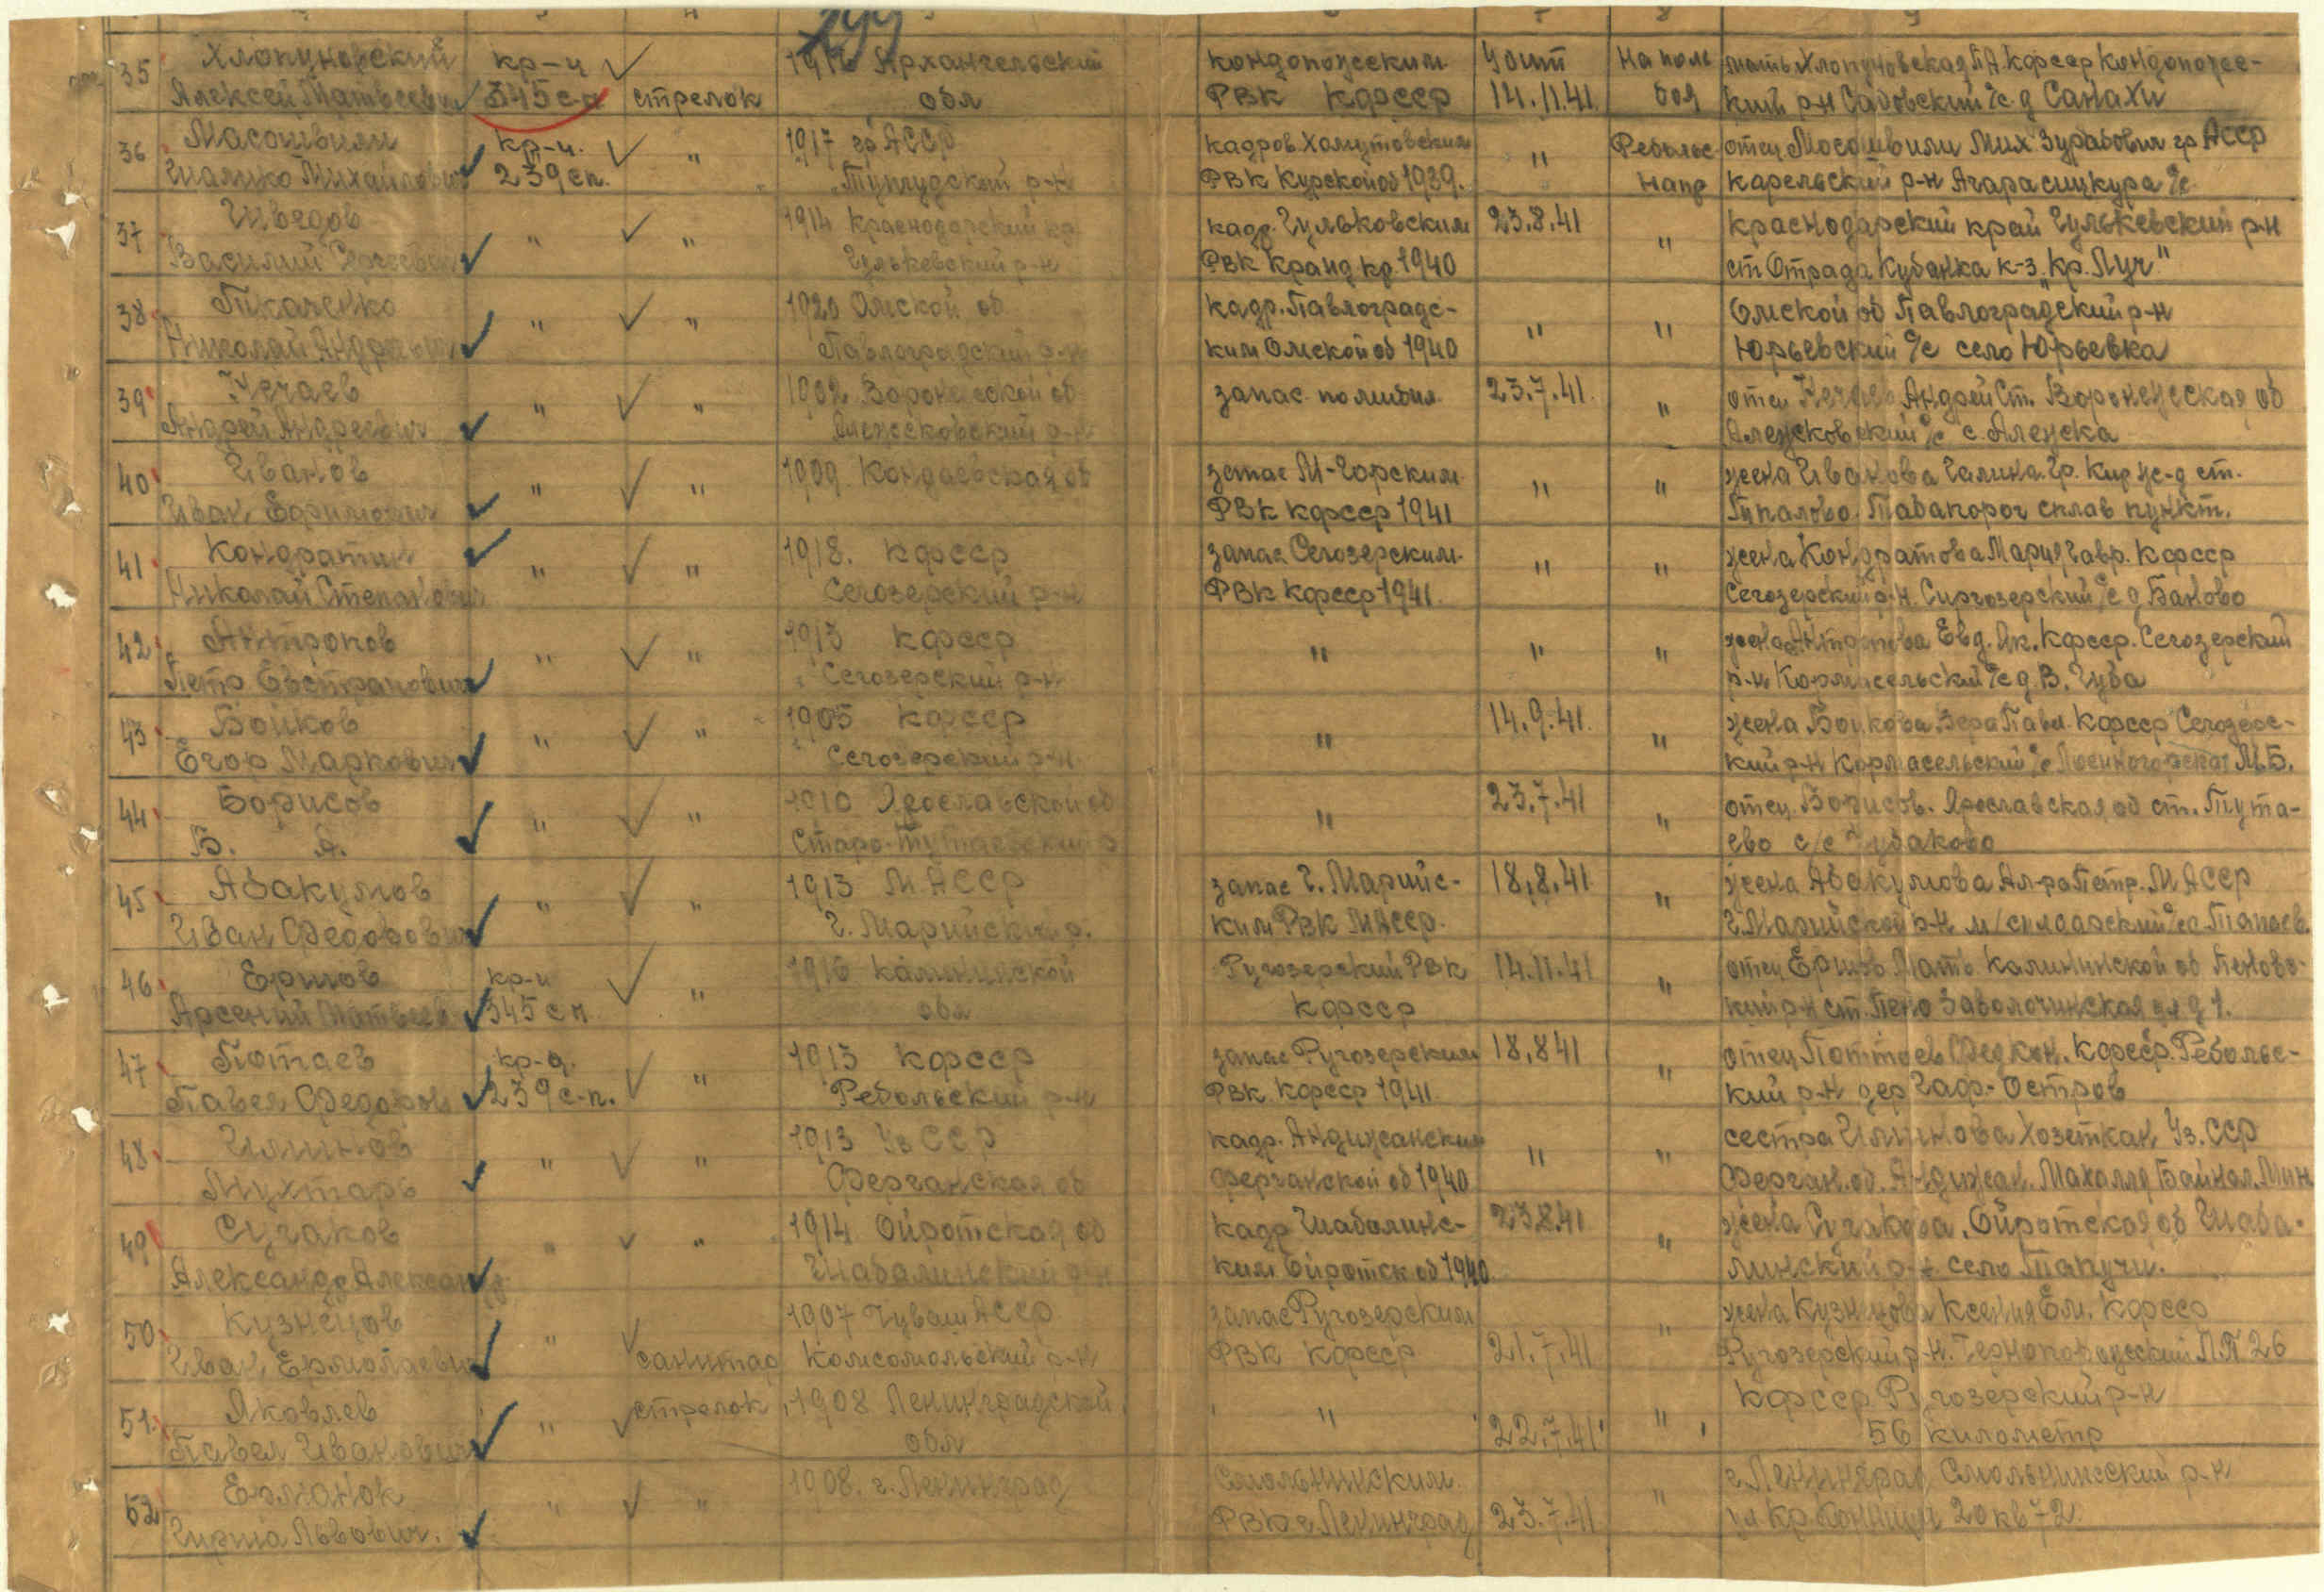 35 Хлопуновский кр-ц 1916 Архангельский кондопожским Убит На поле мать Хлопуновская кфсср Кондопожс-
Алексей Матвеевич 345 сп стрелок обл РВК кфсср 14.11.41 боя кий р-н с/с д
36 Масошвили кр-ц. " 1917 гр АССР кадров Хомутовским " Ребольс отец Мосошвили Мих Зурабович гр АССР
Шалико Михайлович 239 сп. р-н РВК Курской об 1939. напр карельский р-н с/с
37 Шведов " " 1914 Краснодарский кр кадр. Гульковским 23.8.41 " Краснодарский край Гулькевский р-н
Василий Гулькевский р-н РВК Кранд кр. 1940 ст Отрада Кубанка к-з „кр. Луч"
38 Ткаченко " " 1920 Омской об кадр. Павлоградс- " " Омской об Павлоградский р-н
Николай Павлоградский р-н ким Омской об 1940 Юрьевский с/с село Юрьевка
39 Нечаев " " 1902 Воронежской об запас по мобил 23.7.41. " отец Нечаев Андрей Ст. Воронежская об
Андрей Андреевич р-н с/с
40 Иванов " " 1909 запас М-Горским " " жена Иванова Галина Гр. Кир ж-д ст.
Иван Ефимович РВК кфсср 1941 сплав пункт.
41 Кондратин " " 1918. кфсср запас Сегозерским " " жена Кондратова Мария Гавр. Кфсср
Николай Степанович Сегозерский р-н РВК кфсср 1941. Сегозерский р-н. с/с д Баново
42 Антропов " " 1913 кфсср " " " жена Антропова Евд. Як. Кфсср. Сегозерский
Петр Евстрапович Сегозерский р-н р-н Кормасельский с/с д. В. Губа
43 Бойков " " 1905 кфсср " 14.9.41. " жена Бойкова Вера Павл. Кфсср Сегозерс-
Егор Маркович Сегозерский р-н кий р-н Кормасельский с/с М.Б.
44 Борисов " " 1910 Ярославской об " 23.7.41 " отец Борисов. Ярославская об ст. Тута-
Б. А. Старо-Тутаевский р ево с/с
45 Абакумов " " 1913 МАССР запас Г. Марийс- 18,8,41 " жена Абакумова Ал-ра Петр. МАССР
Иван Федорович Г. Марийский р. ким РВК МАССР. Г. Марийской р-н
46 Ершов кр-ц " 1916 Калининской Ругозерский РВК 14.11.41 " отец Ершов Матв Калининской об Пеновс-
Арсений Матвеев 345 сп обл кфсср кий р-н ст. Пено Заволочинская ул д 1.
47 Потаев кр-ц. " 1913 кфсср запас Ругозерским 18,8 41 " отец кфсср. Ребольс-
Павел Федоров 239 с-п. Ребольский р-н РВК. кфсср 1941 кий р-н дер Остров
48 " " 1913 Уз ССР кадр. Андижанским " " сестра Уз. ССР
Мухтарь Ферганская об Ферганской об 1940 Ферган. об. Андижан. Махалля
49 Сугаков " " 1914 Ойротская об кадр Шабалинс- 23 8 41 " жена Сугакова. Ойротская об Шаба-
Александр Александр Шабалинский р-н ким Ойротск об 1940 линский р-н село Топучи.
50 Кузнецов " 1907 Чуваш АССР запас Ругозерским " жена Кузнецова Ксения Ем. Кфсср
Иван Ермолаевич санитар Комсомольский р-н РВК кфсср 21.7.41 Ругозерский р-н. Л.П 26
51. Яковлев " стрелок 1908 Ленинградской " " Кфсср Ругозерский р-н
Павел Иванович обл 22.7.41 56 километр
52 Ермонок " " 1908. г. Ленинград Смольнинским " г. Ленинград Смольнинский р-н
Гирша Львович. РВК г. Ленинград 23.7.41 ул Кр Конницы 20 кв 72.